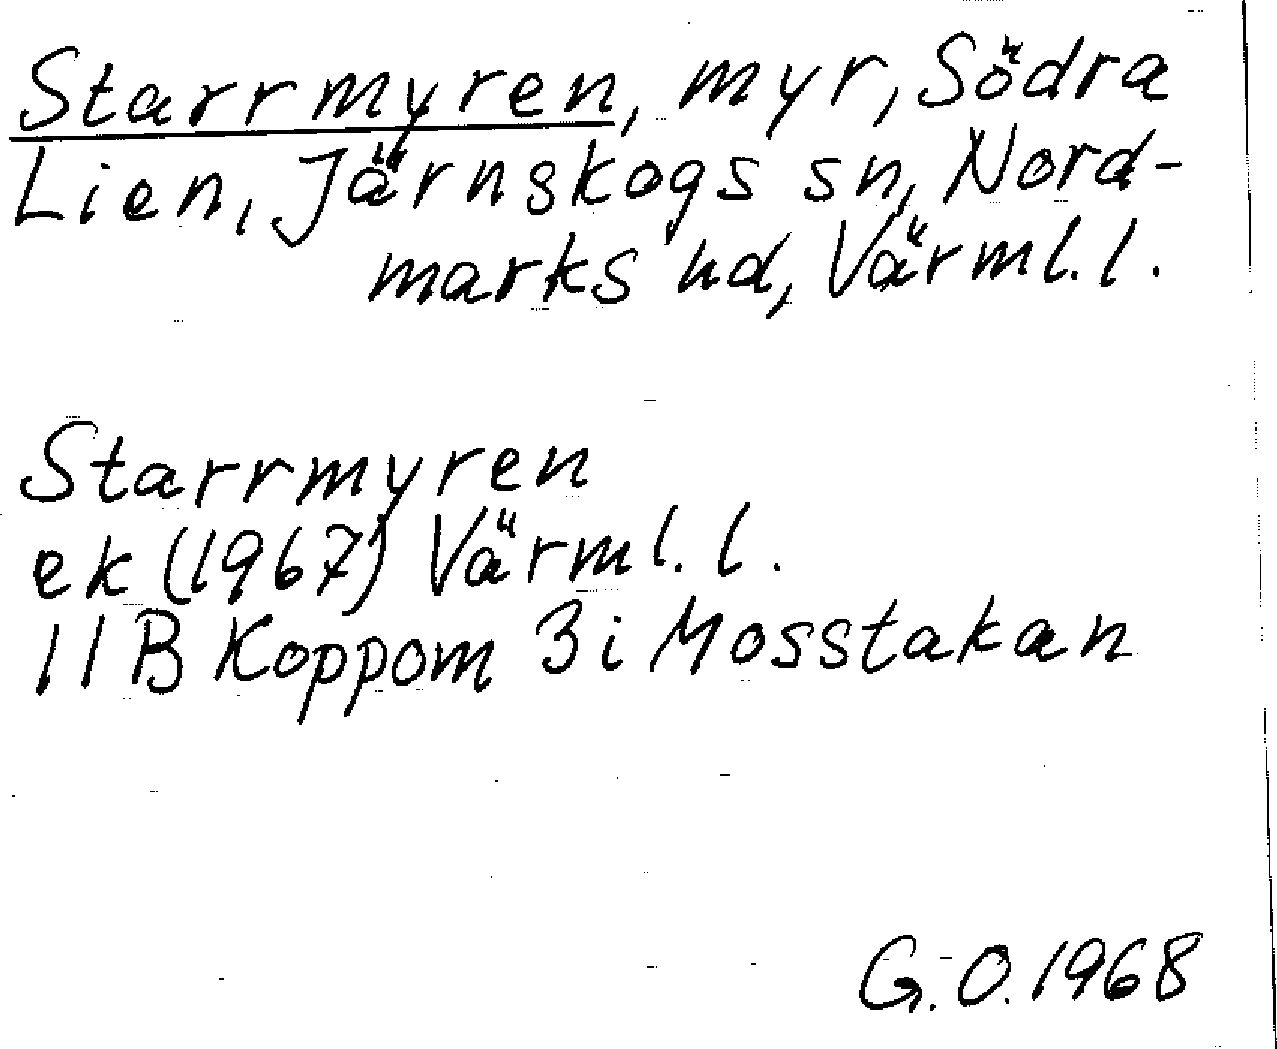 Starrmyren, myr, Södra
Lien, Järnskogs sn, Nord-
marks hd, Värml. l.
Starrmyren
ek (1967) Värml. l.
11B Koppom 3i Mosstakan
G. O. 1968